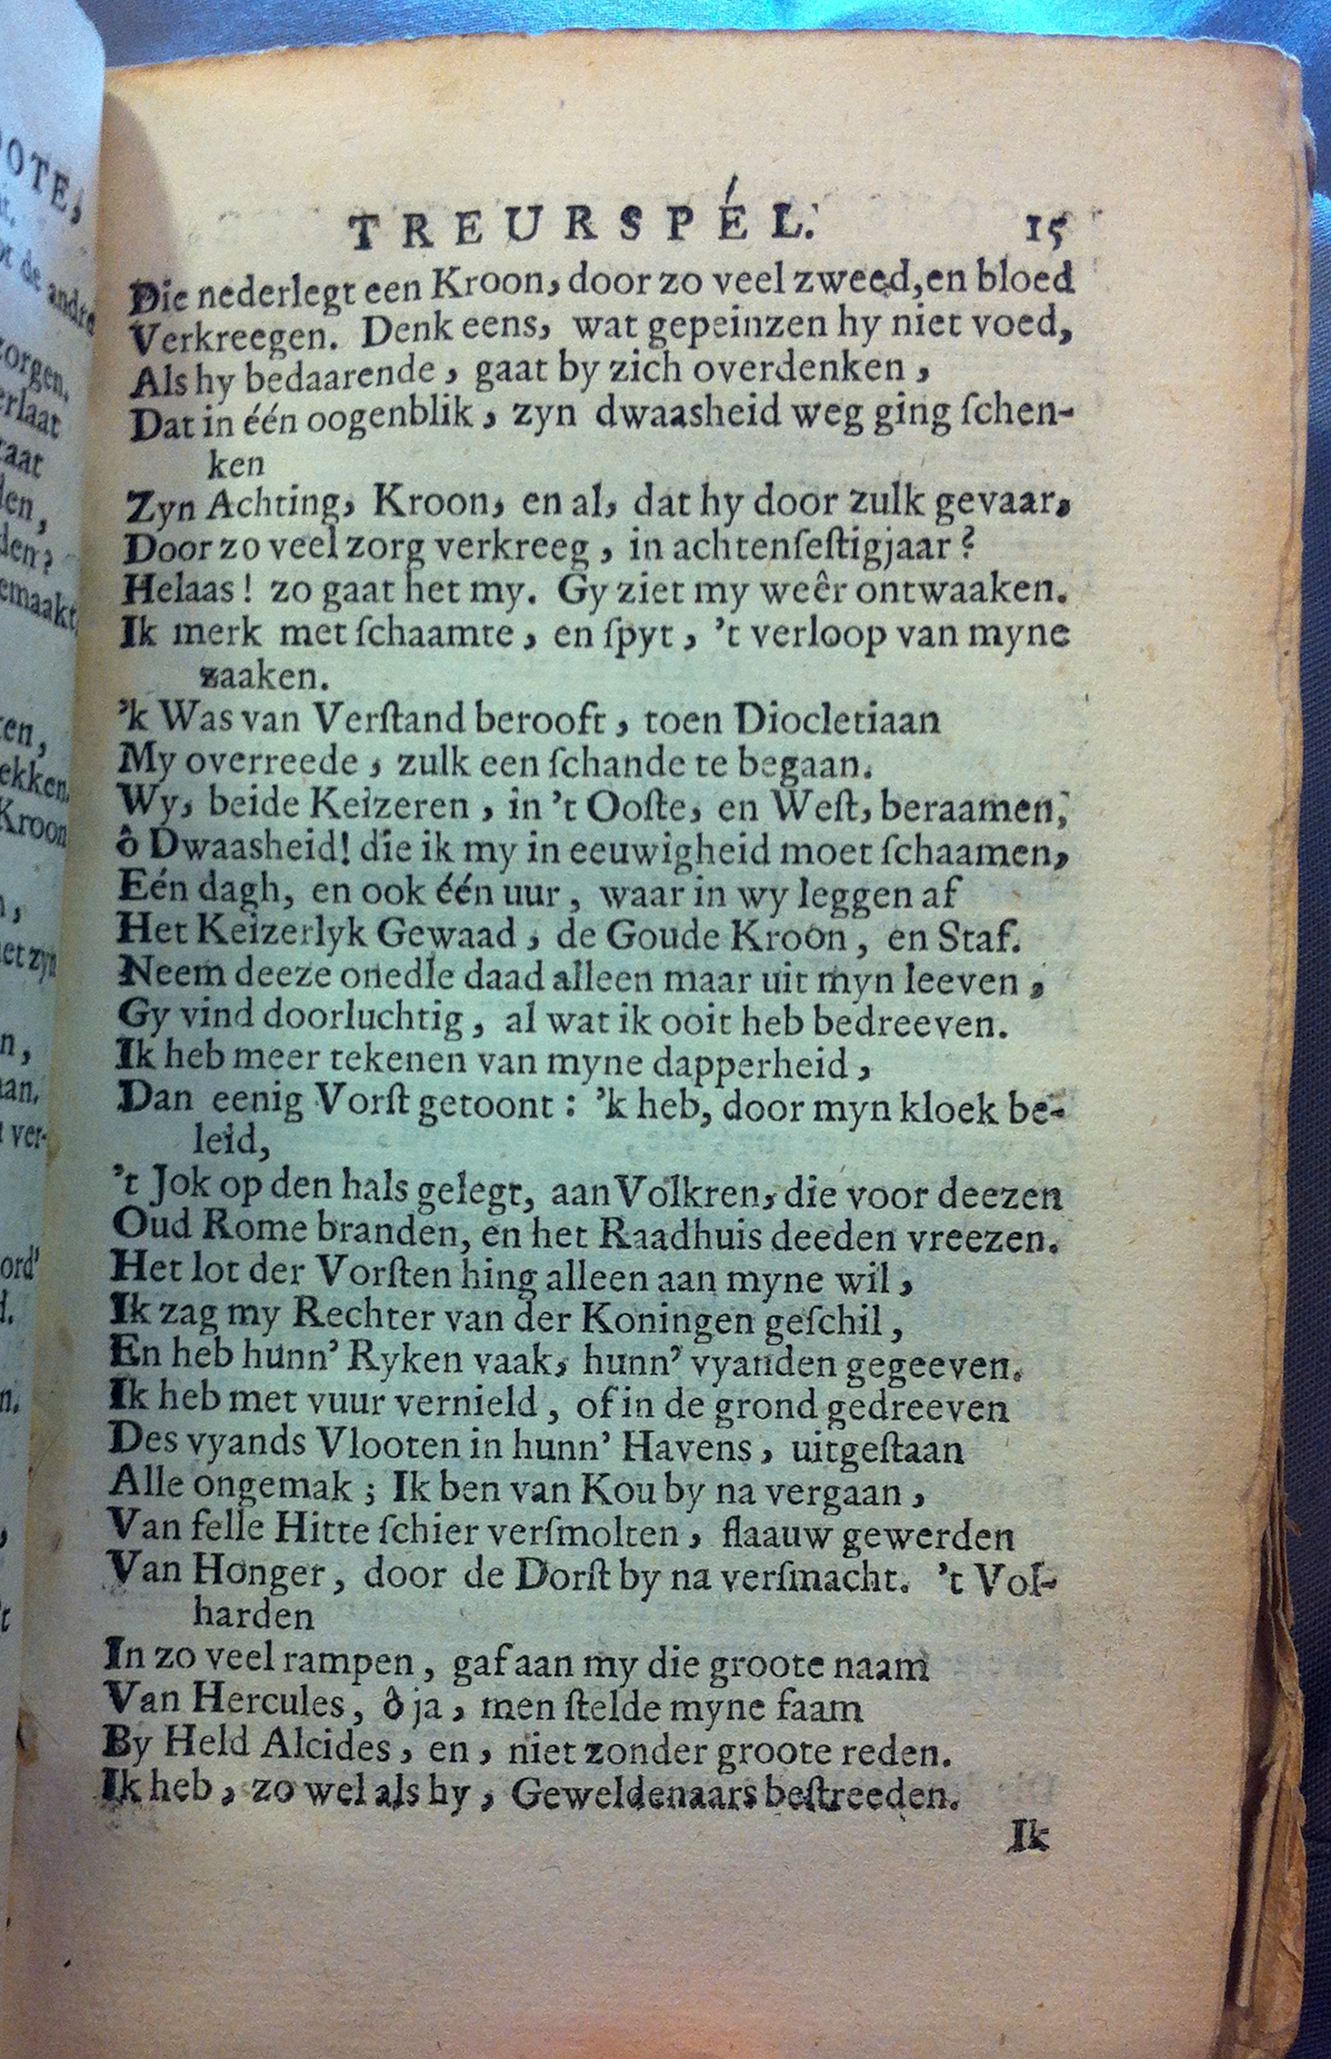 OOTE,
de andre
zorgen.
erlaat
raat
den,
den?
emaakt
ten,
ekken.
Kroon
et zyn
n,
aan.
ver-
ord'
d.
n.
TREURSPÉL. 15
Die nederlegt een Kroon, door zo veel zweed, en bloed
Verkreegen. Denk eens, wat gepeinzen hy niet voed,
Als hy bedaarende, gaat by zich overdenken,
Dat in één oogenblik, zyn dwaasheid weg ging ſchen-
ken
Zyn Achting, Kroon, en al, dat hy door zulk gevaar,
Door zo veel zorg verkreeg, in achtenſeſtigjaar?
Helaas! zo gaat het my. Gy ziet my weêr ontwaaken.
Ik merk met ſchaamte, en ſpyt, 't verloop van myne
zaaken.
'k Was van Verſtand berooft, toen Diocletiaan
My overreede, zulk een ſchande te begaan.
Wy, beide Keizeren, in 't Ooſte, en Weſt, beraamen,
ô Dwaasheid! die ik my in eeuwigheid moet ſchaamen,
Eén dagh, en ook één uur, waar in wy leggen af
Het Keizerlyk Gewaad, de Goude Kroon, en Staf.
Neem deeze onedle daad alleen maar uit myn leeven,
Gy vind doorluchtig, al wat ik ooit heb bedreeven.
Ik heb meer tekenen van myne dapperheid,
Dan eenig Vorſt getoont: 'k heb, door myn kloek be-
leid,
't Jok op den hals gelegt, aan Volkren, die voor deezen
Oud Rome branden, en het Raadhuis deeden vreezen.
Het lot der Vorſten hing alleen aan myne wil,
Ik zag my Rechter van der Koningen geſchil,
En heb hunn' Ryken vaak, hunn' vyanden gegeeven.
Ik heb met vuur vernield, of in de grond gedreeven
Des vyands Vlooten in hunn' Havens, uitgeſtaan
Alle ongemak; Ik ben van Kou by na vergaan,
Van felle Hitte ſchier verſmolten, flaauw gewerden
Van Honger, door de Dorſt by na verſmacht. 't Vol-
harden
In zo veel rampen, gaf aan my die groote naam
Van Hercules, ô ja, men ſtelde myne faam
By Held Alcides, en, niet zonder groote reden.
Ik heb, zo wel als hy, Geweldenaars beſtreeden.
Ik